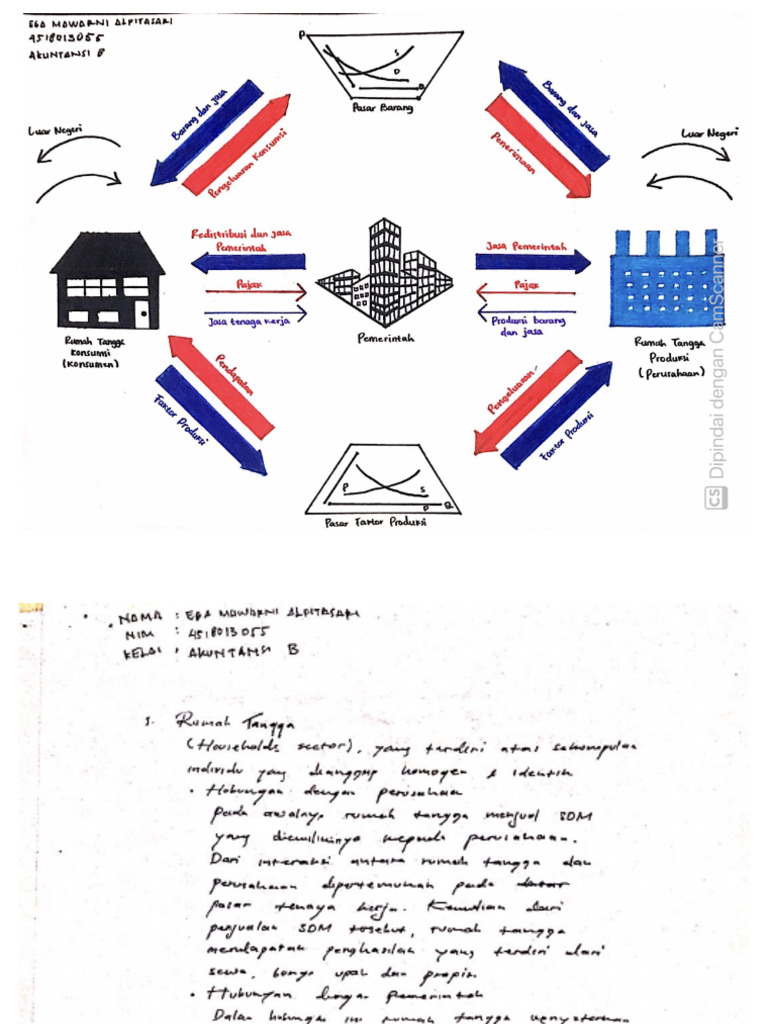 EGA MAWARNI ALFITASARI
4518013055
AKUNTANSI B
P
S
D
Q
Pasar Barang
Barang dan jasa
Pengeluaran Konsumsi
Barang dan jasa
Penerimaan
Luar Negeri
Luar Negeri
Redistribusi dan jasa
Pemerintah
Pajak
Jasa tenaga kerja
Jasa Pemerintah
Pajak
Produksi barang
dan jasa
Rumah Tangga
Konsumsi
(Konsumen)
Pemerintah
Rumah Tangga
Produksi
(Perusahaan)
Pendapatan
Faktor Produksi
Pengeluaran
Faktor Produksi
P
S
D
Q
Pasar Faktor Produksi
CS Dipindai dengan CamScanner
NAMA : EGA MAWARNI ALFITASARI
NIM : 4518013055
KELAS : AKUNTANSI B
1. Rumah Tangga
(Households sector), yang terdiri atas sekumpulan
individu yang dianggap homogen & identik
• Hubungan dengan perusahaan
Pada awalnya rumah tangga menjual SDM
yang dimilikinya kepada perusahaan.
Dari interaksi antara rumah tangga dan
perusahaan dipertemukan pada
pasar tenaga kerja. Kemudian dari
penjualan SDM tersebut, rumah tangga
mendapatan penghasilan yang terdiri dari
sewa, bunga upah dan propit
• Hubungan dengan pemerintah
Dalam hubungan ini rumah tangga